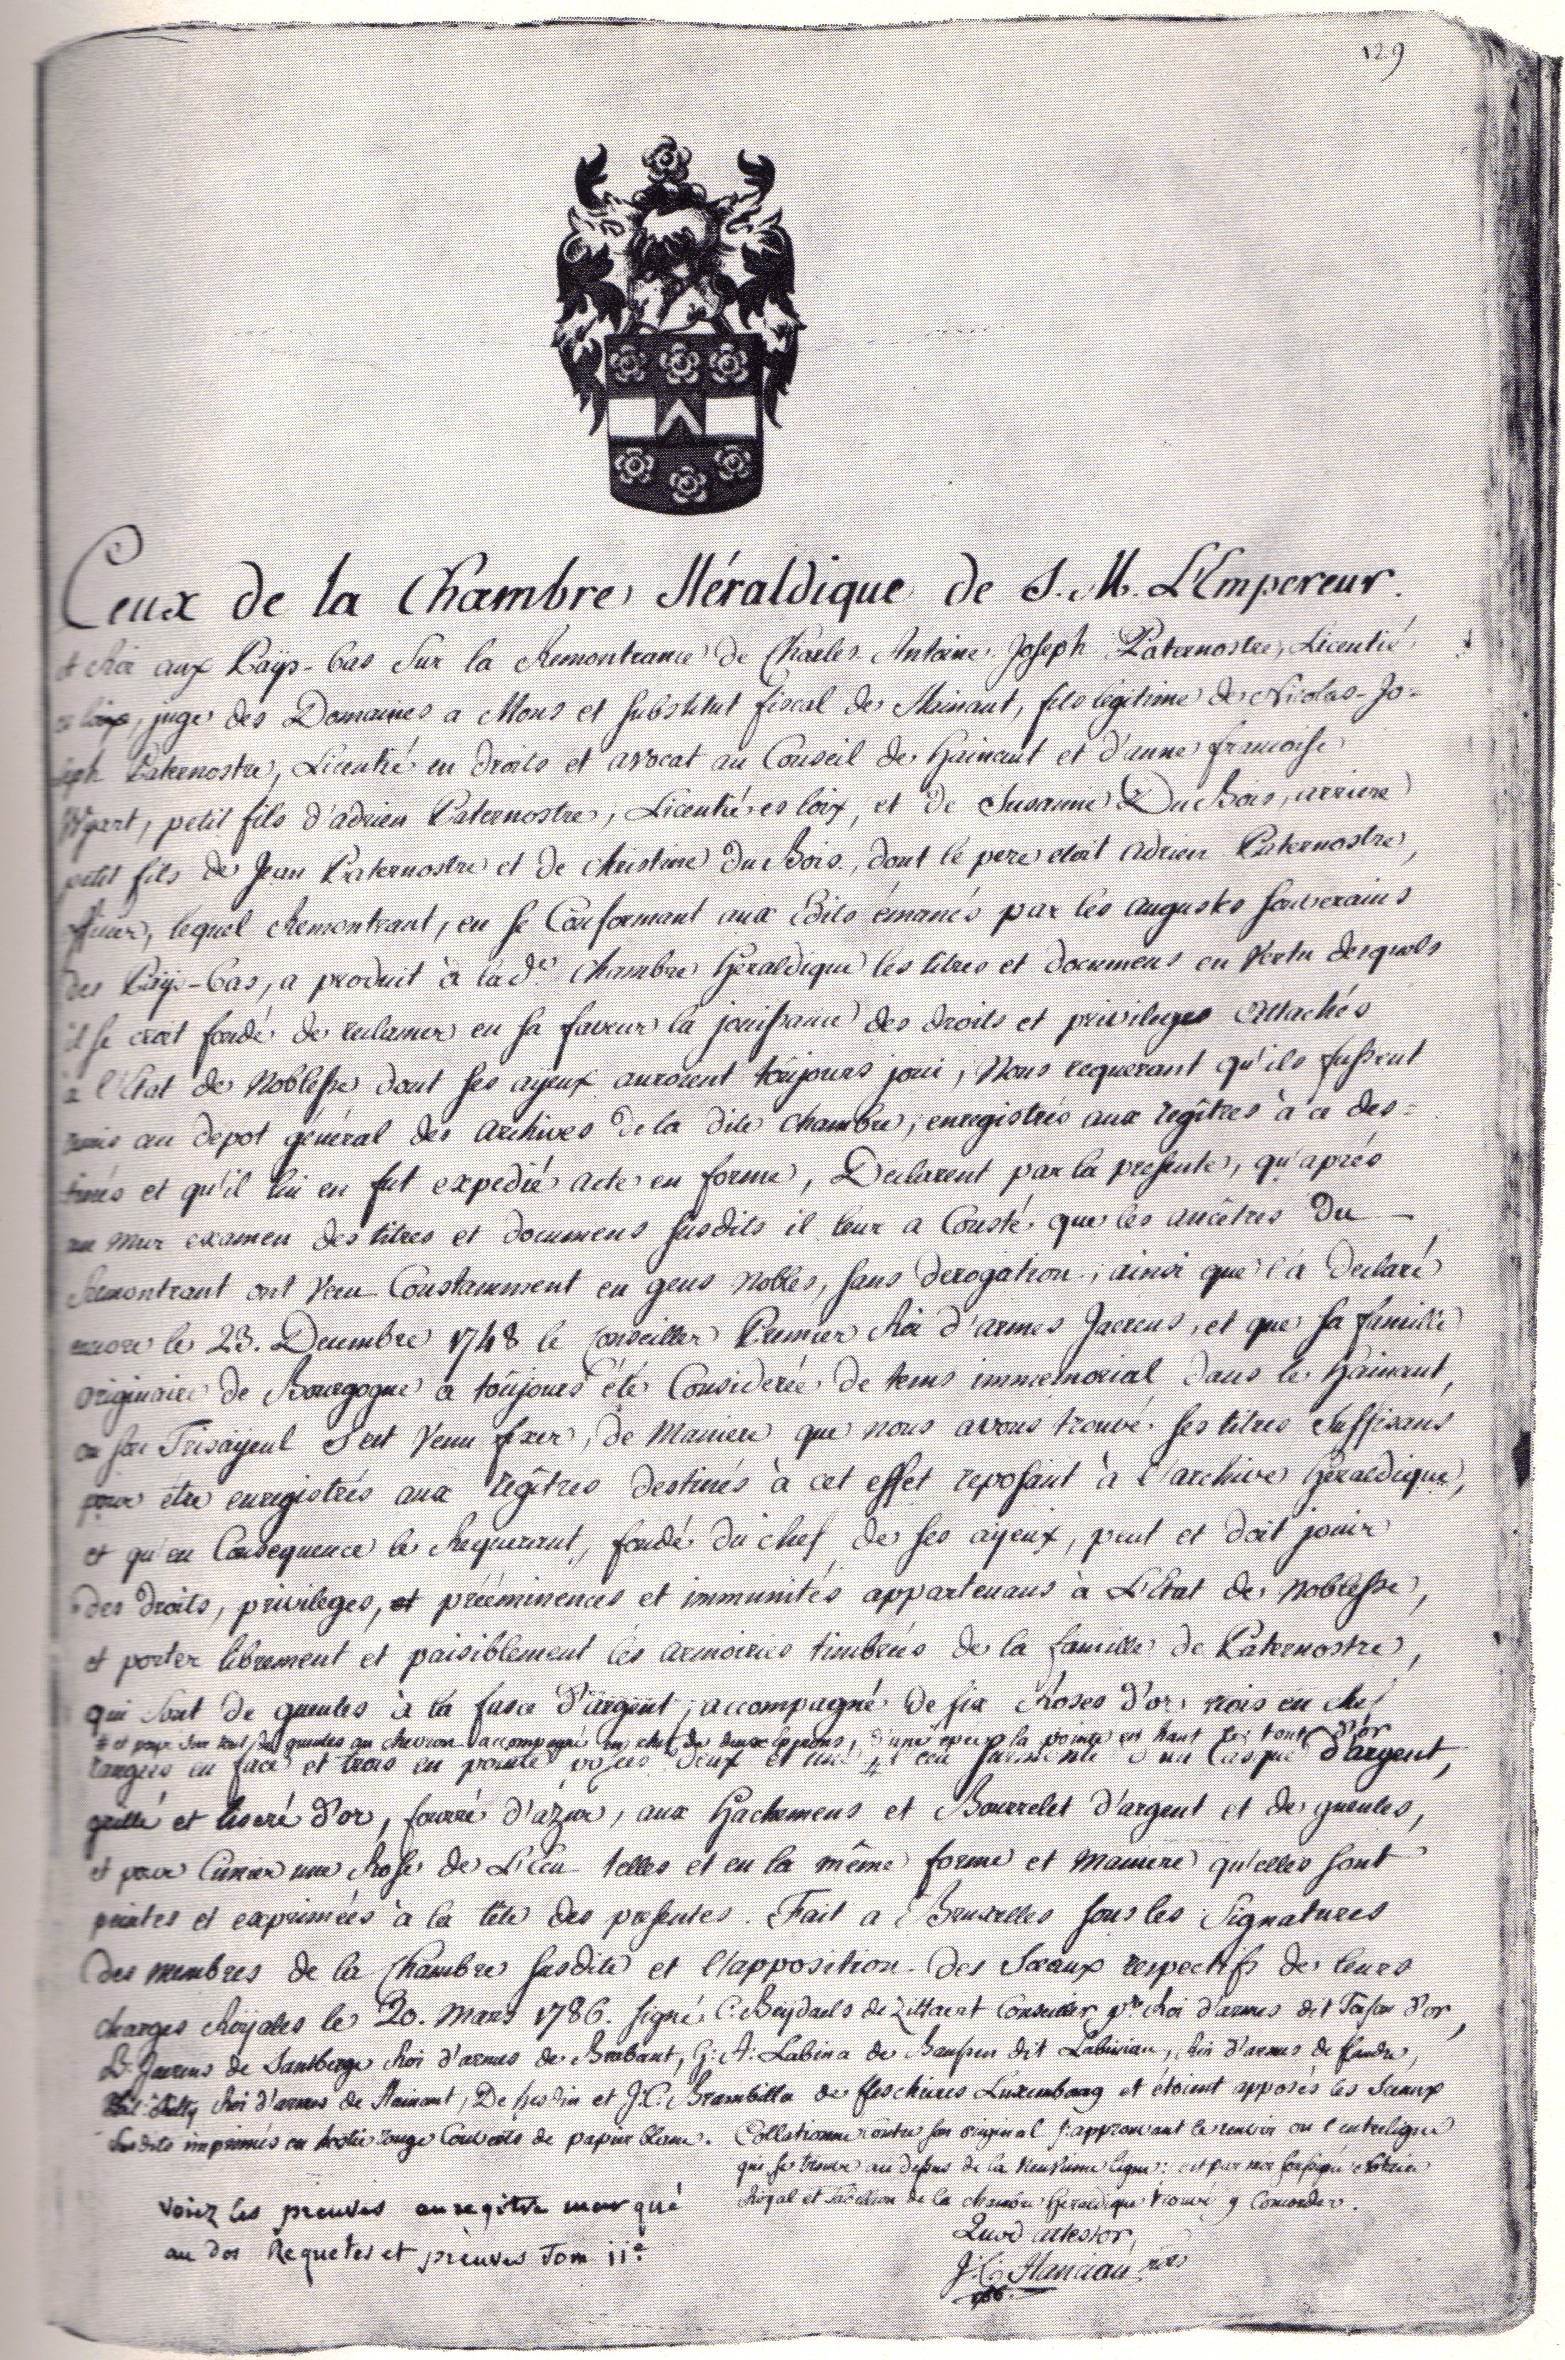 129
Ceux de la Chambre Héraldique de S. M. L'Empereur.
et Roi aux Païs-bas sur la Remontrance de Charles Antoine Joseph Paternostre, Licentié
es loix, juge des Domaines a Mons et substitut fiscal de Hainaut, fils légitime de Nicolas-Jo-
seph Paternostre, Licentié en droits et avocat au Conseil de hainaut et d'anne francoise
Wyart, petit fils d'adrien Paternostre, Licentié es loix, et de Susanne Du Bois, arriere
petit fils de Jean Paternostre et de christine du Bois, dont le pere etoit adrien Paternostre,
lequel Remontrant, en se Conformant aux Edits émanés par les augustes souverains
des Païs-bas, a produit à la de. chambre héraldique les titres et documens en vertu desquels
il se croit fondé de reclamer en sa faveur la jouissance des droits et privileges attachés
à l'état de noblesse dont ses ayeux auroient toujours joui, Nous requerant qu'ils fussent
remis au depot général des archives de la dite chambre, enregistrés aux regîtres à ce des-
tinés et qu'il lui en fut expedié acte en forme, Declarent par la presente, qu'aprés
un mur examen des titres et documens susdits il leur a Consté que les ancêtres du
Remontrant ont vecu Constamment en gens nobles, sans derogation, ainsi que l'a declaré
encore le 23. Decembre 1748 le Conseiller Premier Roi d'armes Jaerens, et que sa famille
originaire de Bourgogne a toûjours été Considerée de tems immemorial dans le hainaut,
ou son Trisaÿeul s'est venu fixer, de maniere que nous avons trouvé ses titres suffisans
pour étre enregistrés aux regîtres destinés à cet effet reposant à l'archive héraldique,
et qu'en Consequence le Requerant, fondé du chef de ses ayeux, peut et doit jouir
des droits, privileges, et prééminences et immunités appartenans à L'Etat de noblesse,
et porter librement et paisiblement les armoiries timbrées de la famille de Paternostre,
qui sont de gueules à la fasce d'argent, accompagné de six Roses d'or, trois en chef
# et pour sur tout de gueules au chevron accompagné en chef de deux d'une épée la pointe en haut le tout d'or
rangées en face et trois en pointe posées deux et une, # l'ecu surmonté d'un Casque d'argent,
grillé et liseré d'or, fourré d'azur, aux hachemens et Bourrelet d'argent et de gueules,
et pour Cimier une Rose de L'ecu telles et en la même forme et maniere qu'elles sont
peintes et exprimées à la tête des presentes. Fait a Bruxelles sous les Signatures
des membres de la Chambre susdite et l'apposition des Sceaux respectifs de leurs
charges Royales le 20. mars 1786. signé C. Beydaels de Zittaert Conseiller pr. Roi d'armes dit Toison d'or,
D. Jaerens de Santberge Roi d'armes de Brabant, G: A: Labina de Baussen dit Labiniau, Roi d'armes de flandre,
Roi d'armes de Hainaut, De hesdin et J. C. Brambilla de Luxembourg et étoient apposés les Sceaux
susdits imprimés en hostie rouge Couverts de papier blanc. Collationné contre son original s'approuvant le renvoi ou l'entreligne
que se trouve au dessus de la neuvieme ligne: est par moi soussigné notaire
Roÿal et Tabellion de la chambre heraldique trouvé y Concorder.
Quod attestor,
voiez les preuves au regitre marqué
au dos Requetes et preuves Tom 11e.
1786.